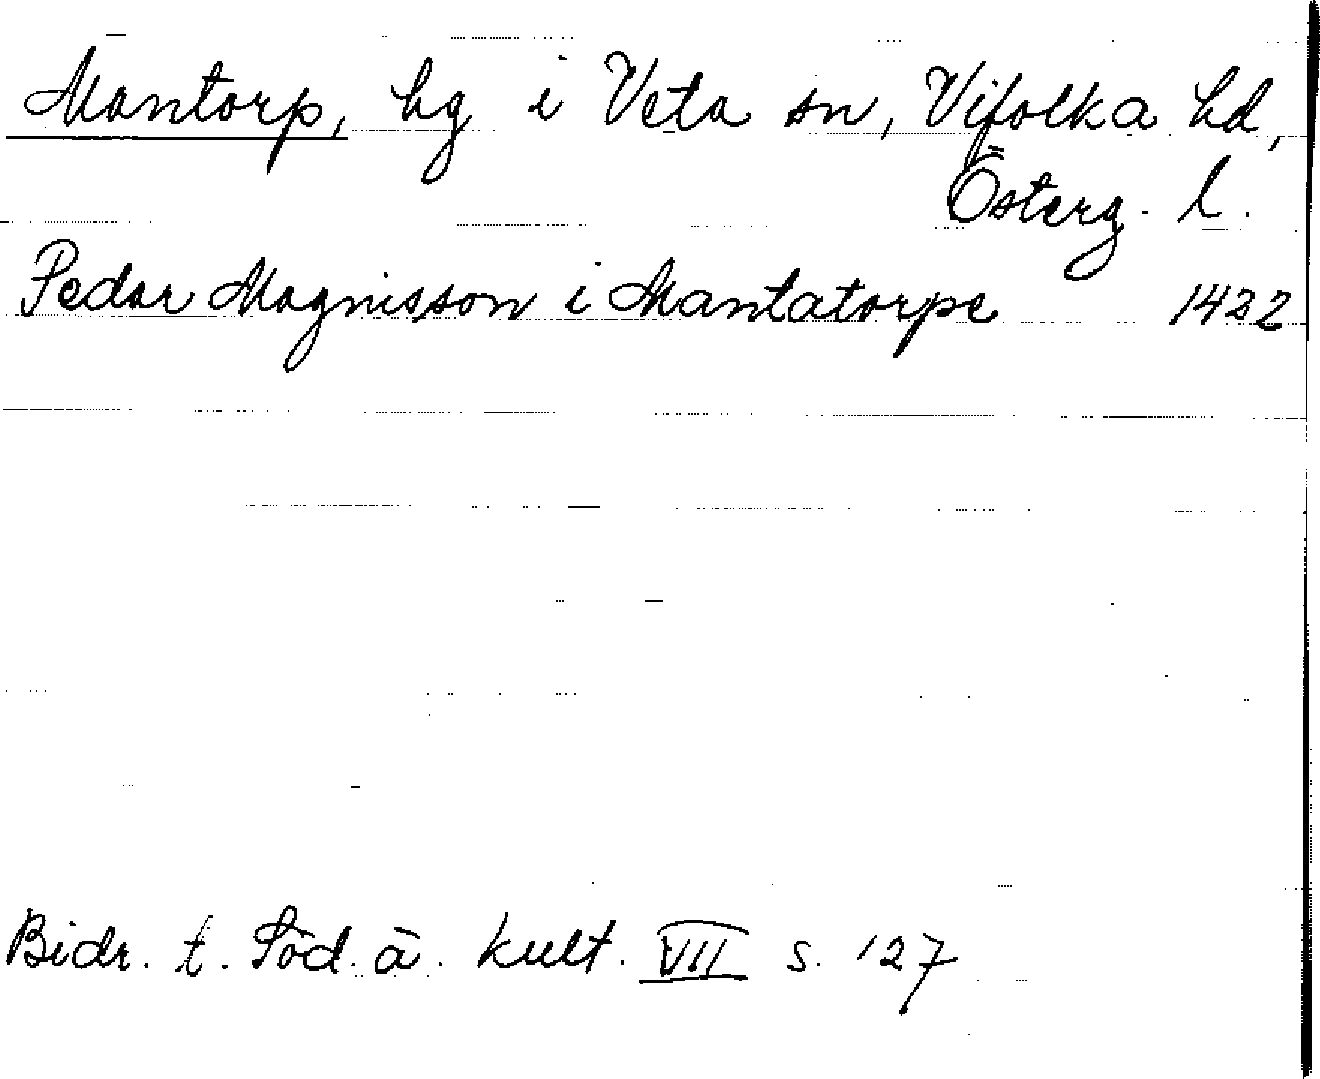 Mantorp, hg i Veta sn, Vifolka hd,
Österg. l.
Pedar Magnisson i Mantatorpe 1422
Bidr. t. Söd. ä. kult. VII s. 127